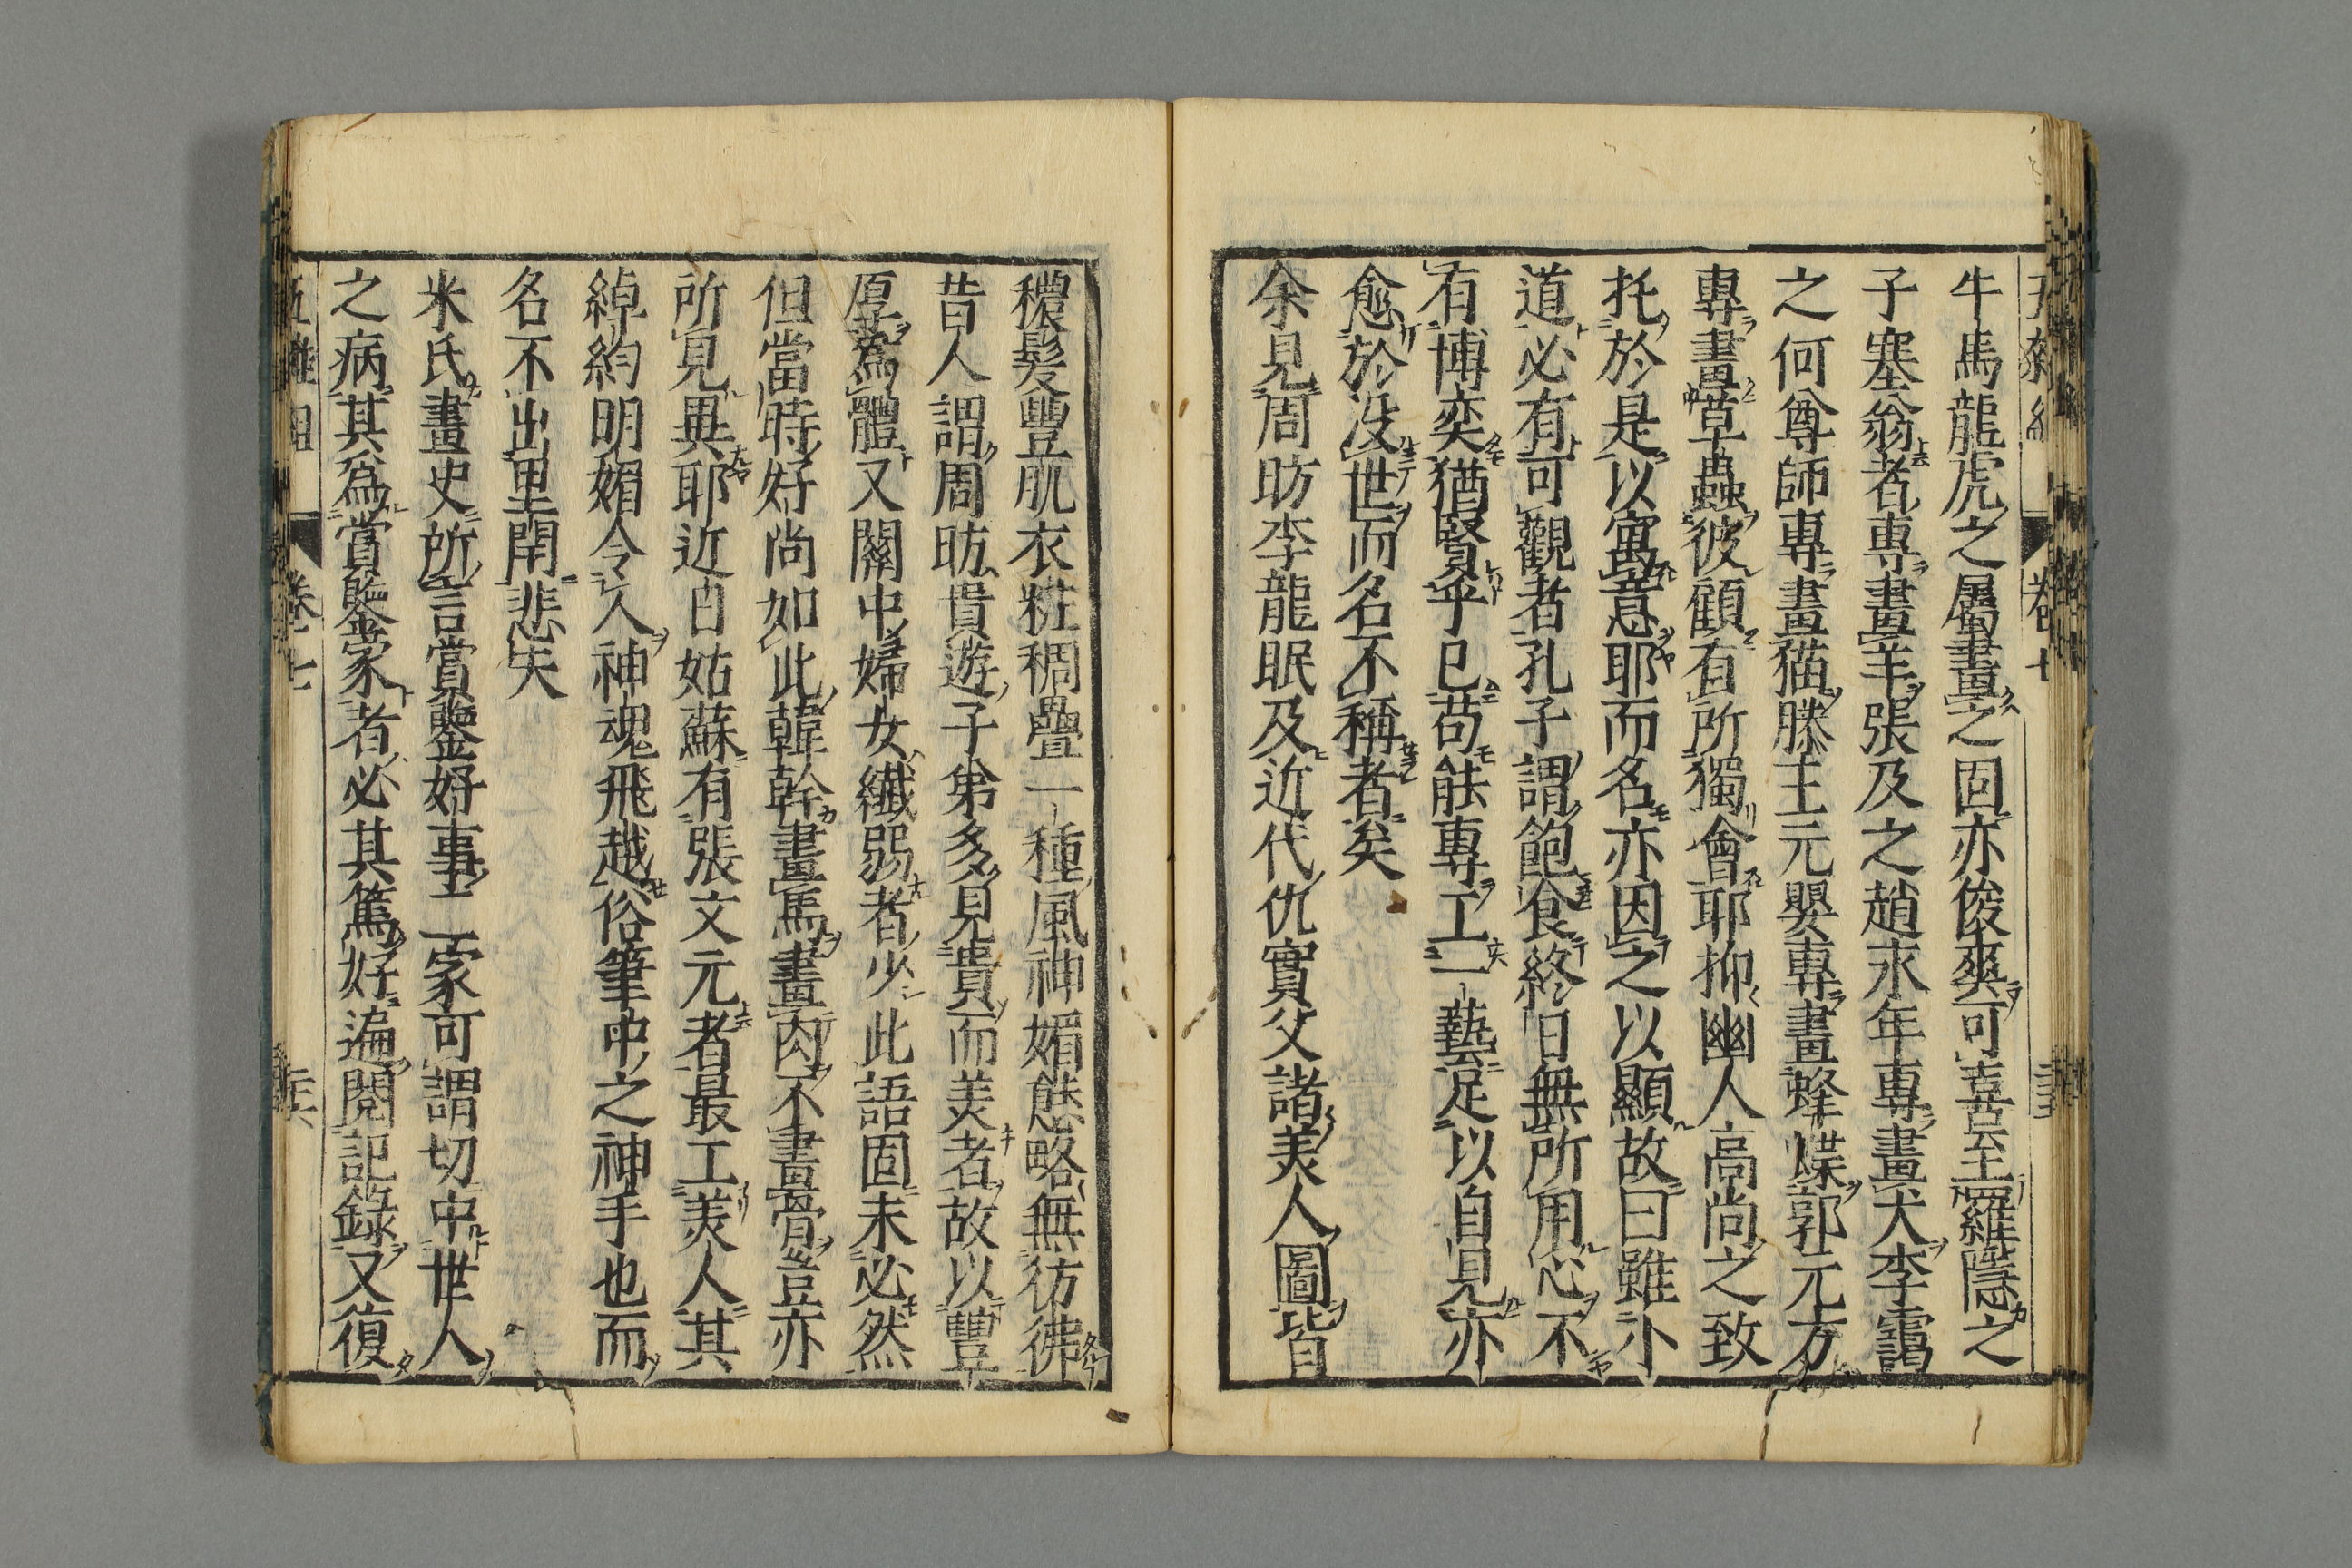 牛馬龍虎之屬畫之固亦俊爽可喜至羅隱之
子塞翁者專畫羊張及之趙永年專畫犬李靄
之何尊師專畫猫滕王元嬰專畫蜂蝶郭元方
專畫草蟲彼顧有所獨會耶抑幽人高尚之致
托於是以寓意耶而名亦因之以顯故曰雖小
道必有可觀者孔子謂飽食終日無所用心不
有博奕猶賢乎已苟能專工一藝足以自見亦
愈於没世而名不稱者矣
余見周昉李龍眠及近代仇實父諸美人圖皆
穠髮豐肌衣粧稠疊一種風神媚態略無彷彿
昔人謂周昉貴遊子弟多見貴而美者故以豐
厚為體又關中婦女纖弱者少此語固未必然
但當時好尚如此韓幹畫馬畫肉不畫骨豈亦
所見異耶近日姑蘇有張文元者最工美人其
綽約明媚令人神魂飛越俗筆中之神手也而
名不出里閈悲夫
米氏畫史所言賞鑒好事二家可謂切中世人
之病其為賞鑒家者必其篤好遍閲記錄又復
五雜組
卷七